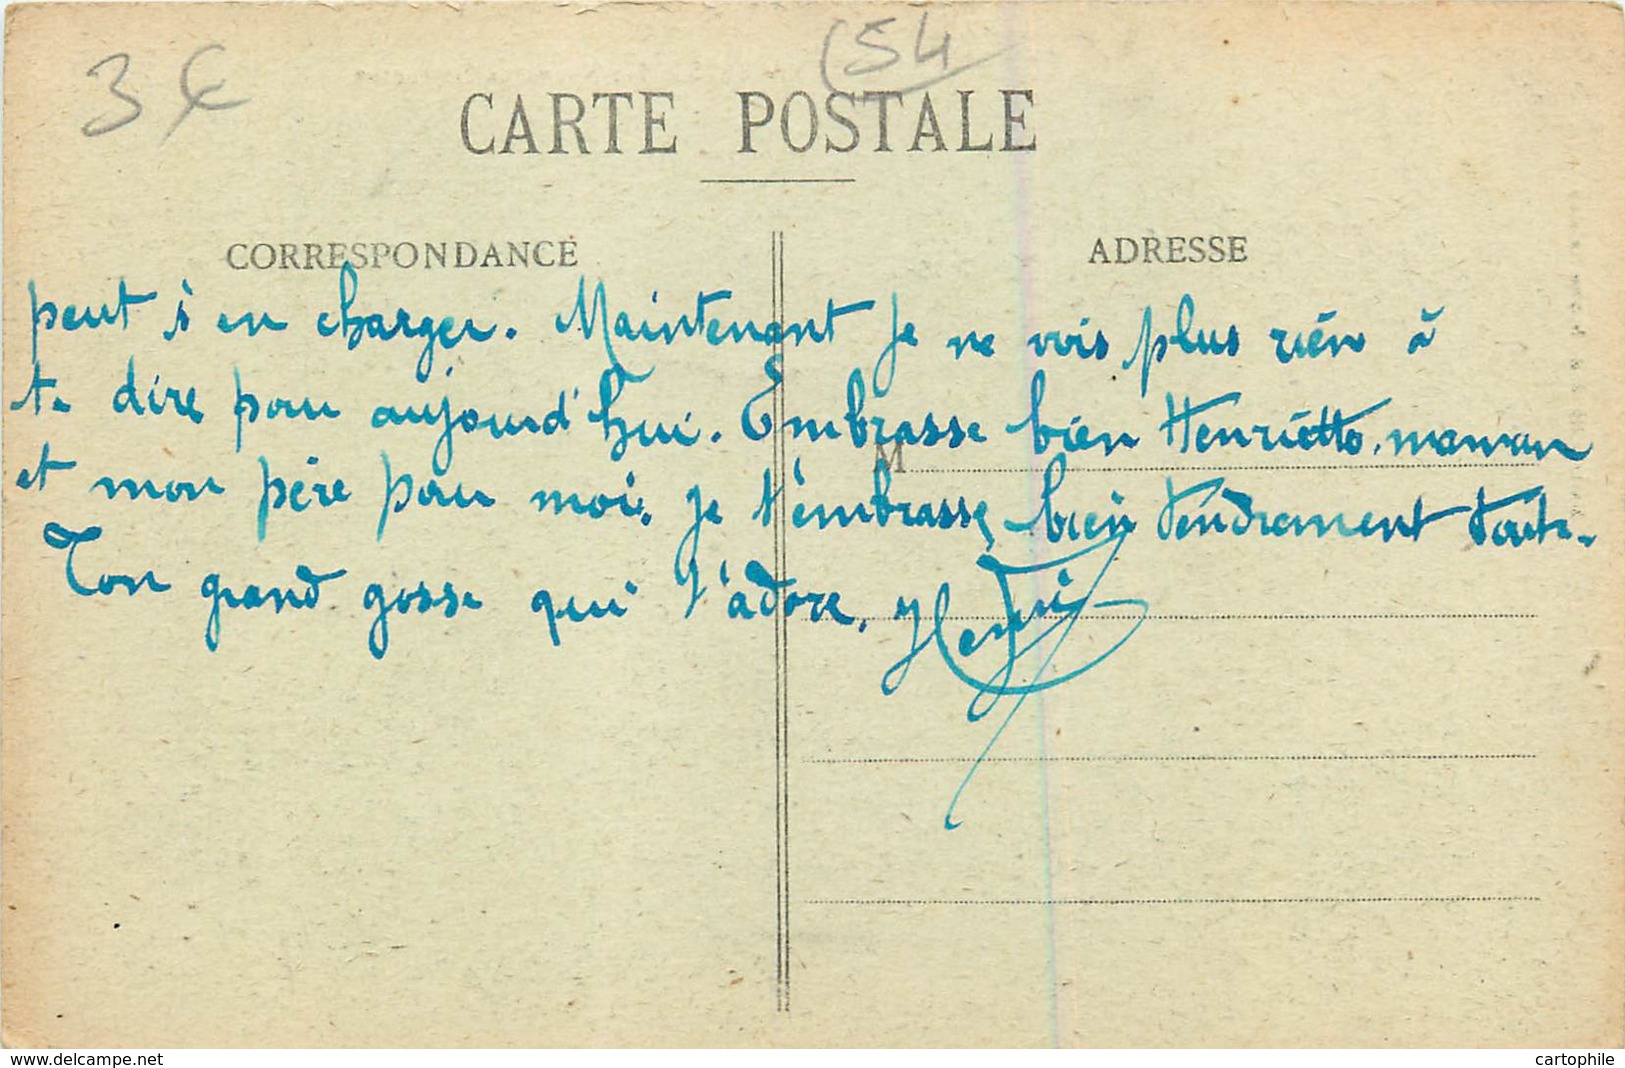 3 €
(54
CARTE POSTALE
CORRESPONDANCE
ADRESSE
peut s'en charger. Maintenant je ne vois plus rien à
te dire pour aujourd'hui. Embrasse bien Henriette, maman
M
et mon père pour moi. Je t'embrasse bien tendrement toute.
Ton grand gosse qui t'adore. Henri
www.delcampe.net
cartophile